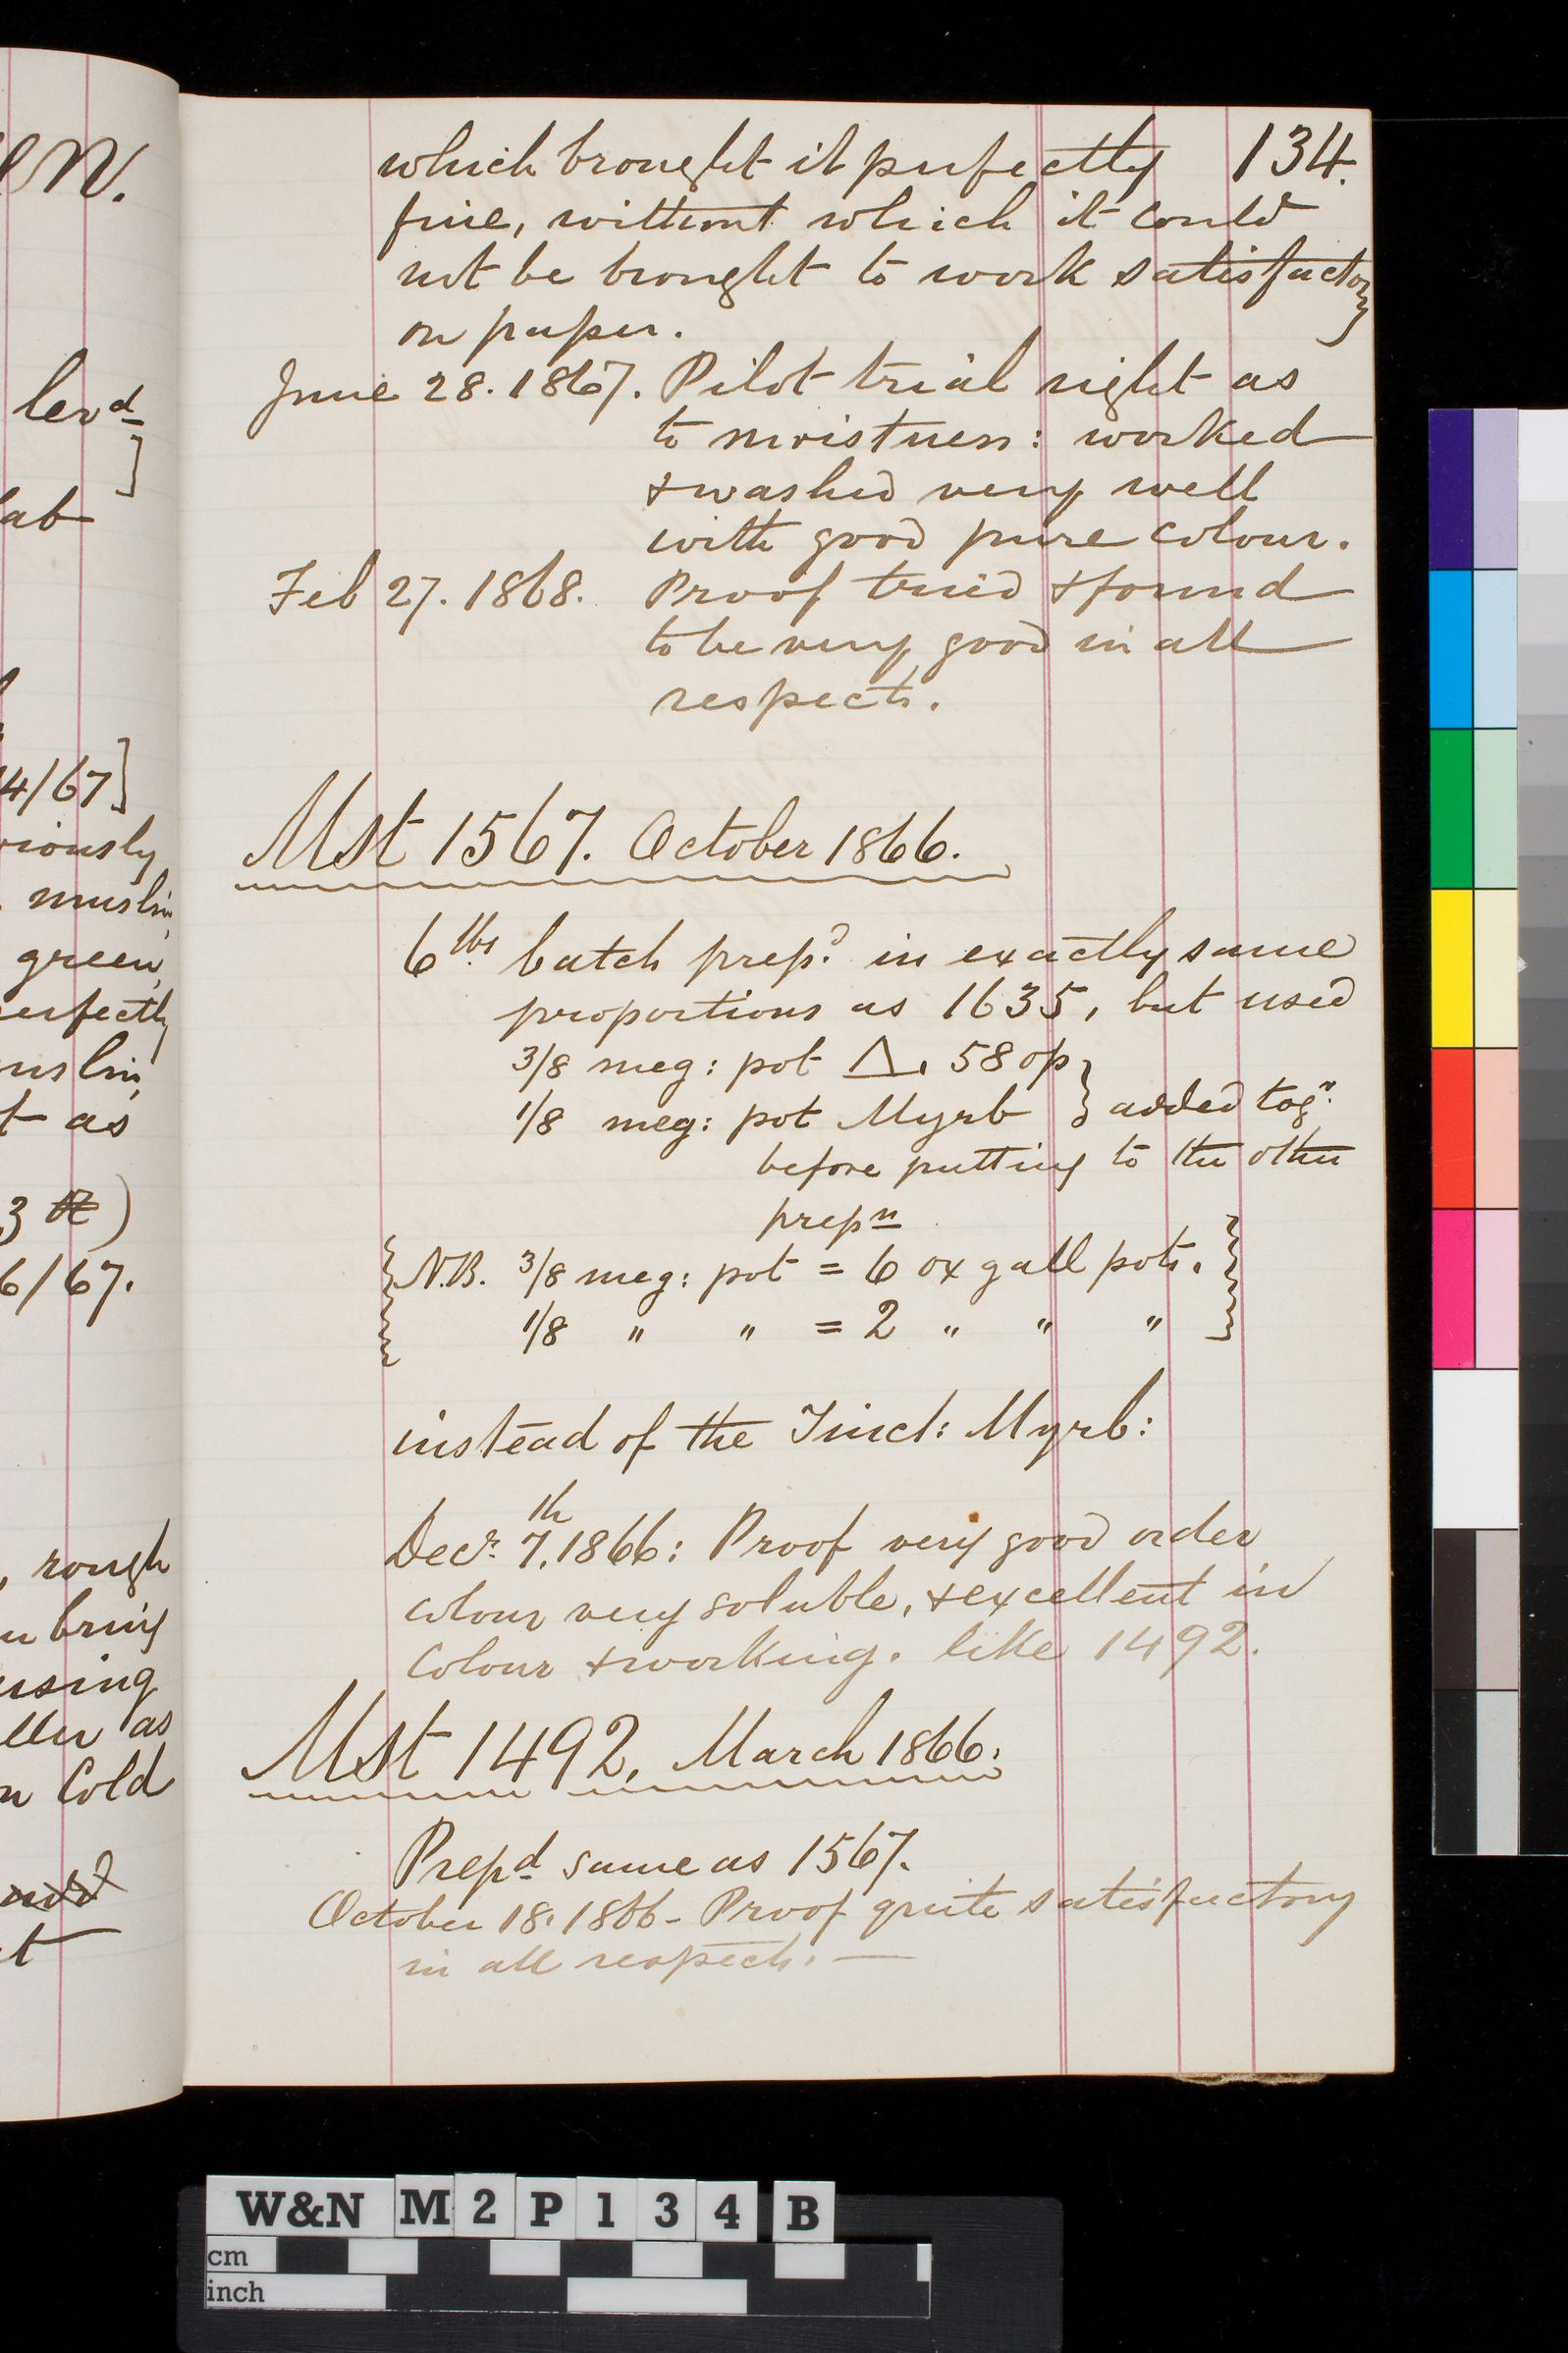 en.
lev^d
]
lab
4/67]
riously
muslin,
green,
erfectly
uslin,
t as
3 )
6/67.
, rough
n bring
using
ller as
n Cold
t
134.
which brought it perfectly
fine, without which it could
not be brought to work satisfactory
on paper.
June 28. 1867. Pilot trial right as
to moistness: worked
& washed very well
with good pure colour.
Feb 27. 1868. Proof tried & found
to be very good in all
respects.
Mst 1567. October 1866.
6 lbs batch prep.d in exactly same
proportions as 1635, but used
3/8 meg: pot Δ. 58 op }
1/8 meg: pot Myrb } added tog.r
before putting to the other
prep^n
{ N.B. 3/8 meg: pot = 6 ox gall pots. }
1/8 " " = 2 " " "
instead of the Tinct: Myrb:
Decr. 7th. 1866: Proof very good order
colour very soluble, & excellent in
Colour & working. like 1492.
Mst 1492, March 1866.
Prep^d same as 1567.
October 18. 1866 - Proof quite satisfactory
in all respects. —
W&N M 2 P 1 3 4 B
cm
inch